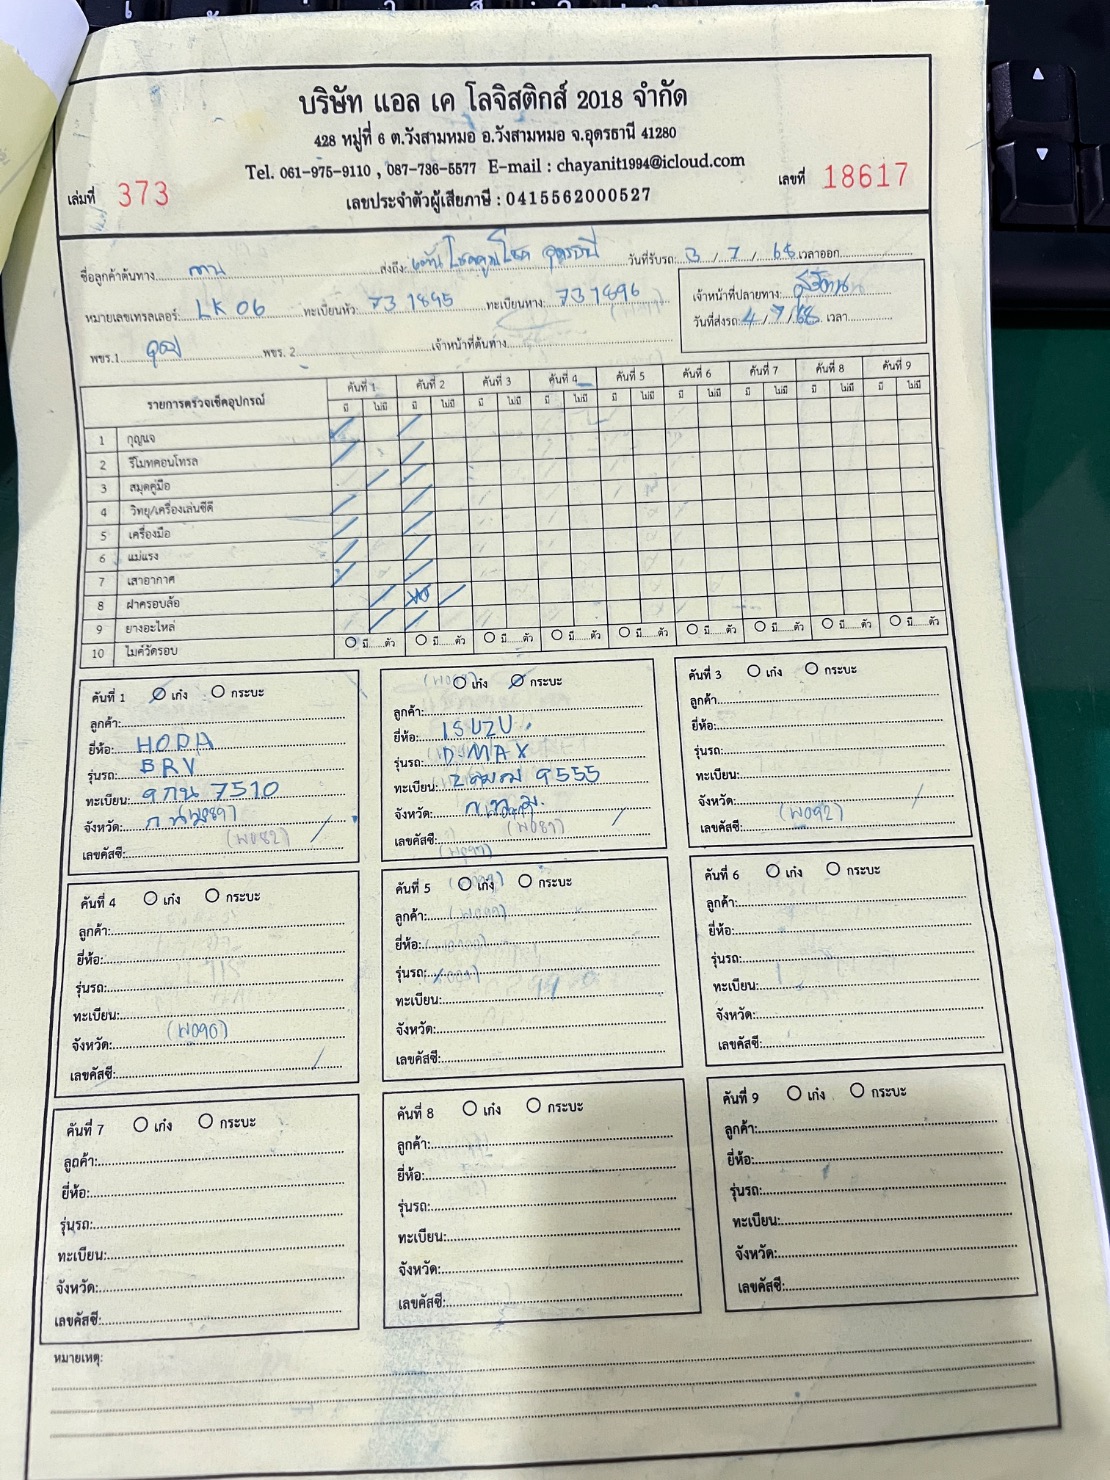 บริษัท แอล เค โลจิสติกส์ 2018 จำกัด
428 หมู่ที่ 6 ต.วังสามหมอ อ.วังสามหมอ จ.อุดรธานี 41280
Tel. 061-975-9110 , 087-736-5577 E-mail : chayanit1994@icloud.com
เล่มที่ 373 เลขที่ 18617
เลขประจำตัวผู้เสียภาษี : 0415562000527
ชื่อลูกค้าต้นทาง ลาน ส่งถึง: อุดรธานี วันที่รับรถ: 3 / 7 / 68 เวลาออก
หมายเลขเทรลเลอร์: LK 06 ทะเบียนหัว: 73 1895 ทะเบียนหาง: 73 1896
เจ้าหน้าที่ปลายทาง:
วันที่ส่งรถ: 4 / 7 / 68 เวลา
พขร.1 พขร. 2 เจ้าหน้าที่ต้นทาง
รายการตรวจเช็คอุปกรณ์ คันที่ 1 คันที่ 2 คันที่ 3 คันที่ 4 คันที่ 5 คันที่ 6 คันที่ 7 คันที่ 8 คันที่ 9
มี ไม่มี มี ไม่มี มี ไม่มี มี ไม่มี มี ไม่มี มี ไม่มี มี ไม่มี มี ไม่มี มี ไม่มี
1 กุญแจ
2 รีโมทคอนโทรล
3 สมุดคู่มือ
4 วิทยุ/เครื่องเล่นซีดี
5 เครื่องมือ
6 แม่แรง
7 เสาอากาศ
8 ฝาครอบล้อ
9 ยางอะไหล่
10 ไมค์วัดรอบ มี......ตัว มี......ตัว มี......ตัว มี......ตัว มี......ตัว มี......ตัว มี......ตัว มี......ตัว มี......ตัว
คันที่ 1 เก๋ง กระบะ
ลูกค้า:
ยี่ห้อ: HODA
รุ่นรถ: BRV
ทะเบียน: 7510
จังหวัด:
(W082)
เลขคัสซี:
เก๋ง กระบะ
ลูกค้า:
ยี่ห้อ: ISUZU
รุ่นรถ: D MAX
ทะเบียน: 9555
จังหวัด:
เลขคัสซี:
คันที่ 3 เก๋ง กระบะ
ลูกค้า:
ยี่ห้อ:
รุ่นรถ:
ทะเบียน:
จังหวัด:
(W092)
เลขคัสซี:
คันที่ 4 เก๋ง กระบะ
ลูกค้า:
ยี่ห้อ:
รุ่นรถ:
ทะเบียน:
(W090)
จังหวัด:
เลขคัสซี:
คันที่ 5 เก๋ง กระบะ
ลูกค้า:
ยี่ห้อ:
รุ่นรถ:
ทะเบียน:
จังหวัด:
เลขคัสซี:
คันที่ 6 เก๋ง กระบะ
ลูกค้า:
ยี่ห้อ:
รุ่นรถ:
ทะเบียน:
จังหวัด:
เลขคัสซี:
คันที่ 7 เก๋ง กระบะ
ลูกค้า:
ยี่ห้อ:
รุ่นรถ:
ทะเบียน:
จังหวัด:
เลขคัสซี:
คันที่ 8 เก๋ง กระบะ
ลูกค้า:
ยี่ห้อ:
รุ่นรถ:
ทะเบียน:
จังหวัด:
เลขคัสซี:
คันที่ 9 เก๋ง กระบะ
ลูกค้า:
ยี่ห้อ:
รุ่นรถ:
ทะเบียน:
จังหวัด:
เลขคัสซี:
หมายเหตุ: